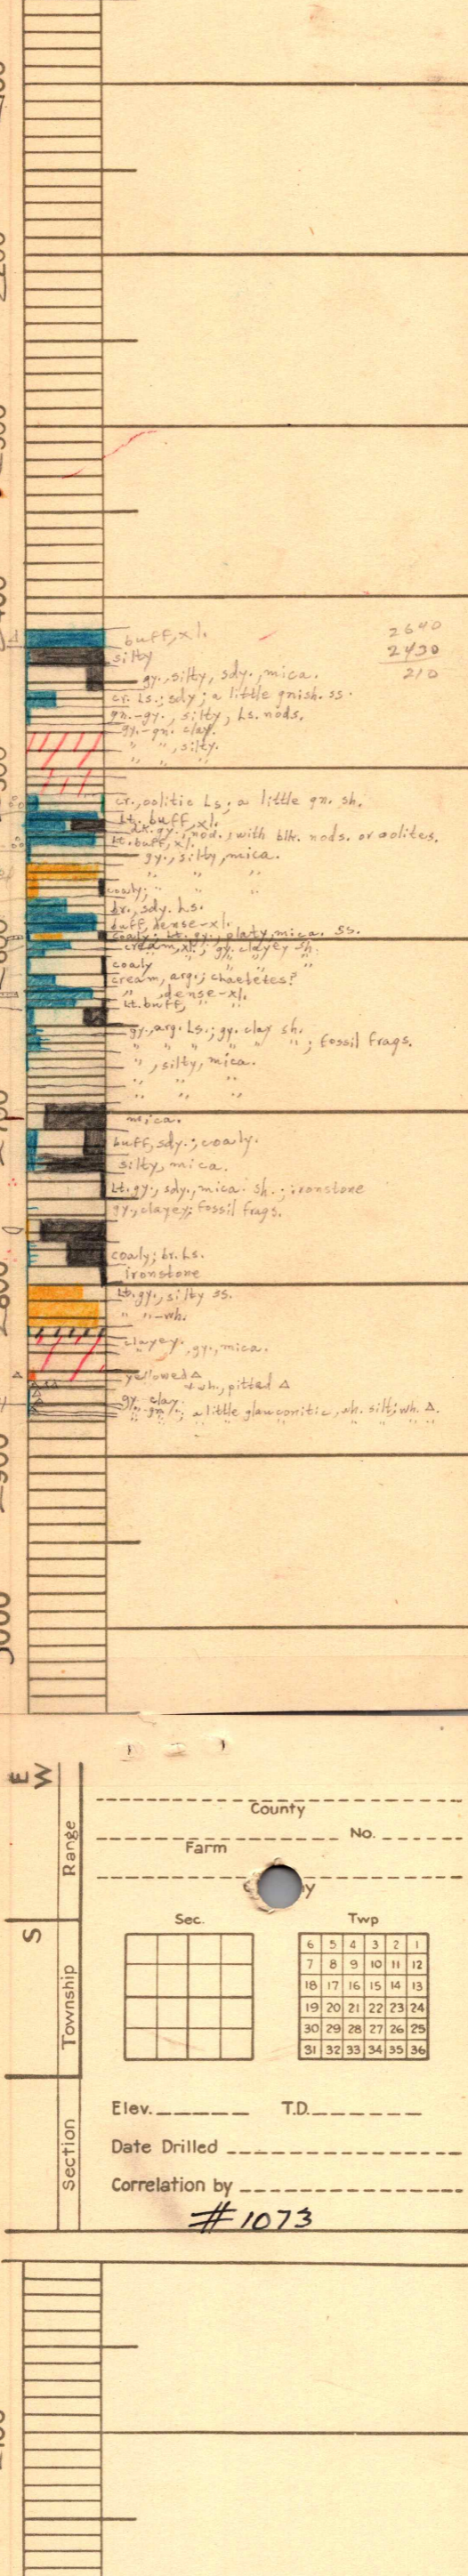 buff, xl.
2640
silty
2430
gy., silty, sdy., mica.
210
cr. Ls.; sdy; a little gnish. ss.
gn.-gy., silty, Ls. nods.
gy.-gn. clay.
" ", silty.
" " "
cr., oolitic Ls; a little gn. sh.
Lt. buff, xl.
dk. gy., nod.; with blk. nods. or oolites.
Lt. buff, xl.
gy., silty, mica.
" " "
coaly; " "
br., sdy. Ls.
buff, dense-xl.
coaly; Lt. gy., platy, mica. ss.
cream, xl.; gy. clayey sh.
coaly " " "
cream, arg.; chaetetes?
" , dense-xl.
Lt. buff, " "
gy., arg. Ls.; gy. clay sh.
" " " " " ; fossil frags.
" , silty, mica.
" " "
" " "
mica.
buff, sdy.; coaly.
silty, mica.
Lt. gy., sdy., mica. sh.; ironstone
gy., clayey; fossil frags.
coaly; br. Ls.
ironstone
Lt. gy., silty ss.
" "-wh.
clayey. , gy., mica.
yellowed Δ
+ wh., pitted Δ
gy. clay.
"-gn. "; a little glauconitic, sh. silt; wh. Δ.
3000
E
W
County
Range
Farm No.
Sec. Twp
S
6 5 4 3 2 1
7 8 9 10 11 12
18 17 16 15 14 13
Township
19 20 21 22 23 24
30 29 28 27 26 25
31 32 33 34 35 36
Elev. T.D.
Section
Date Drilled
Correlation by
#1073